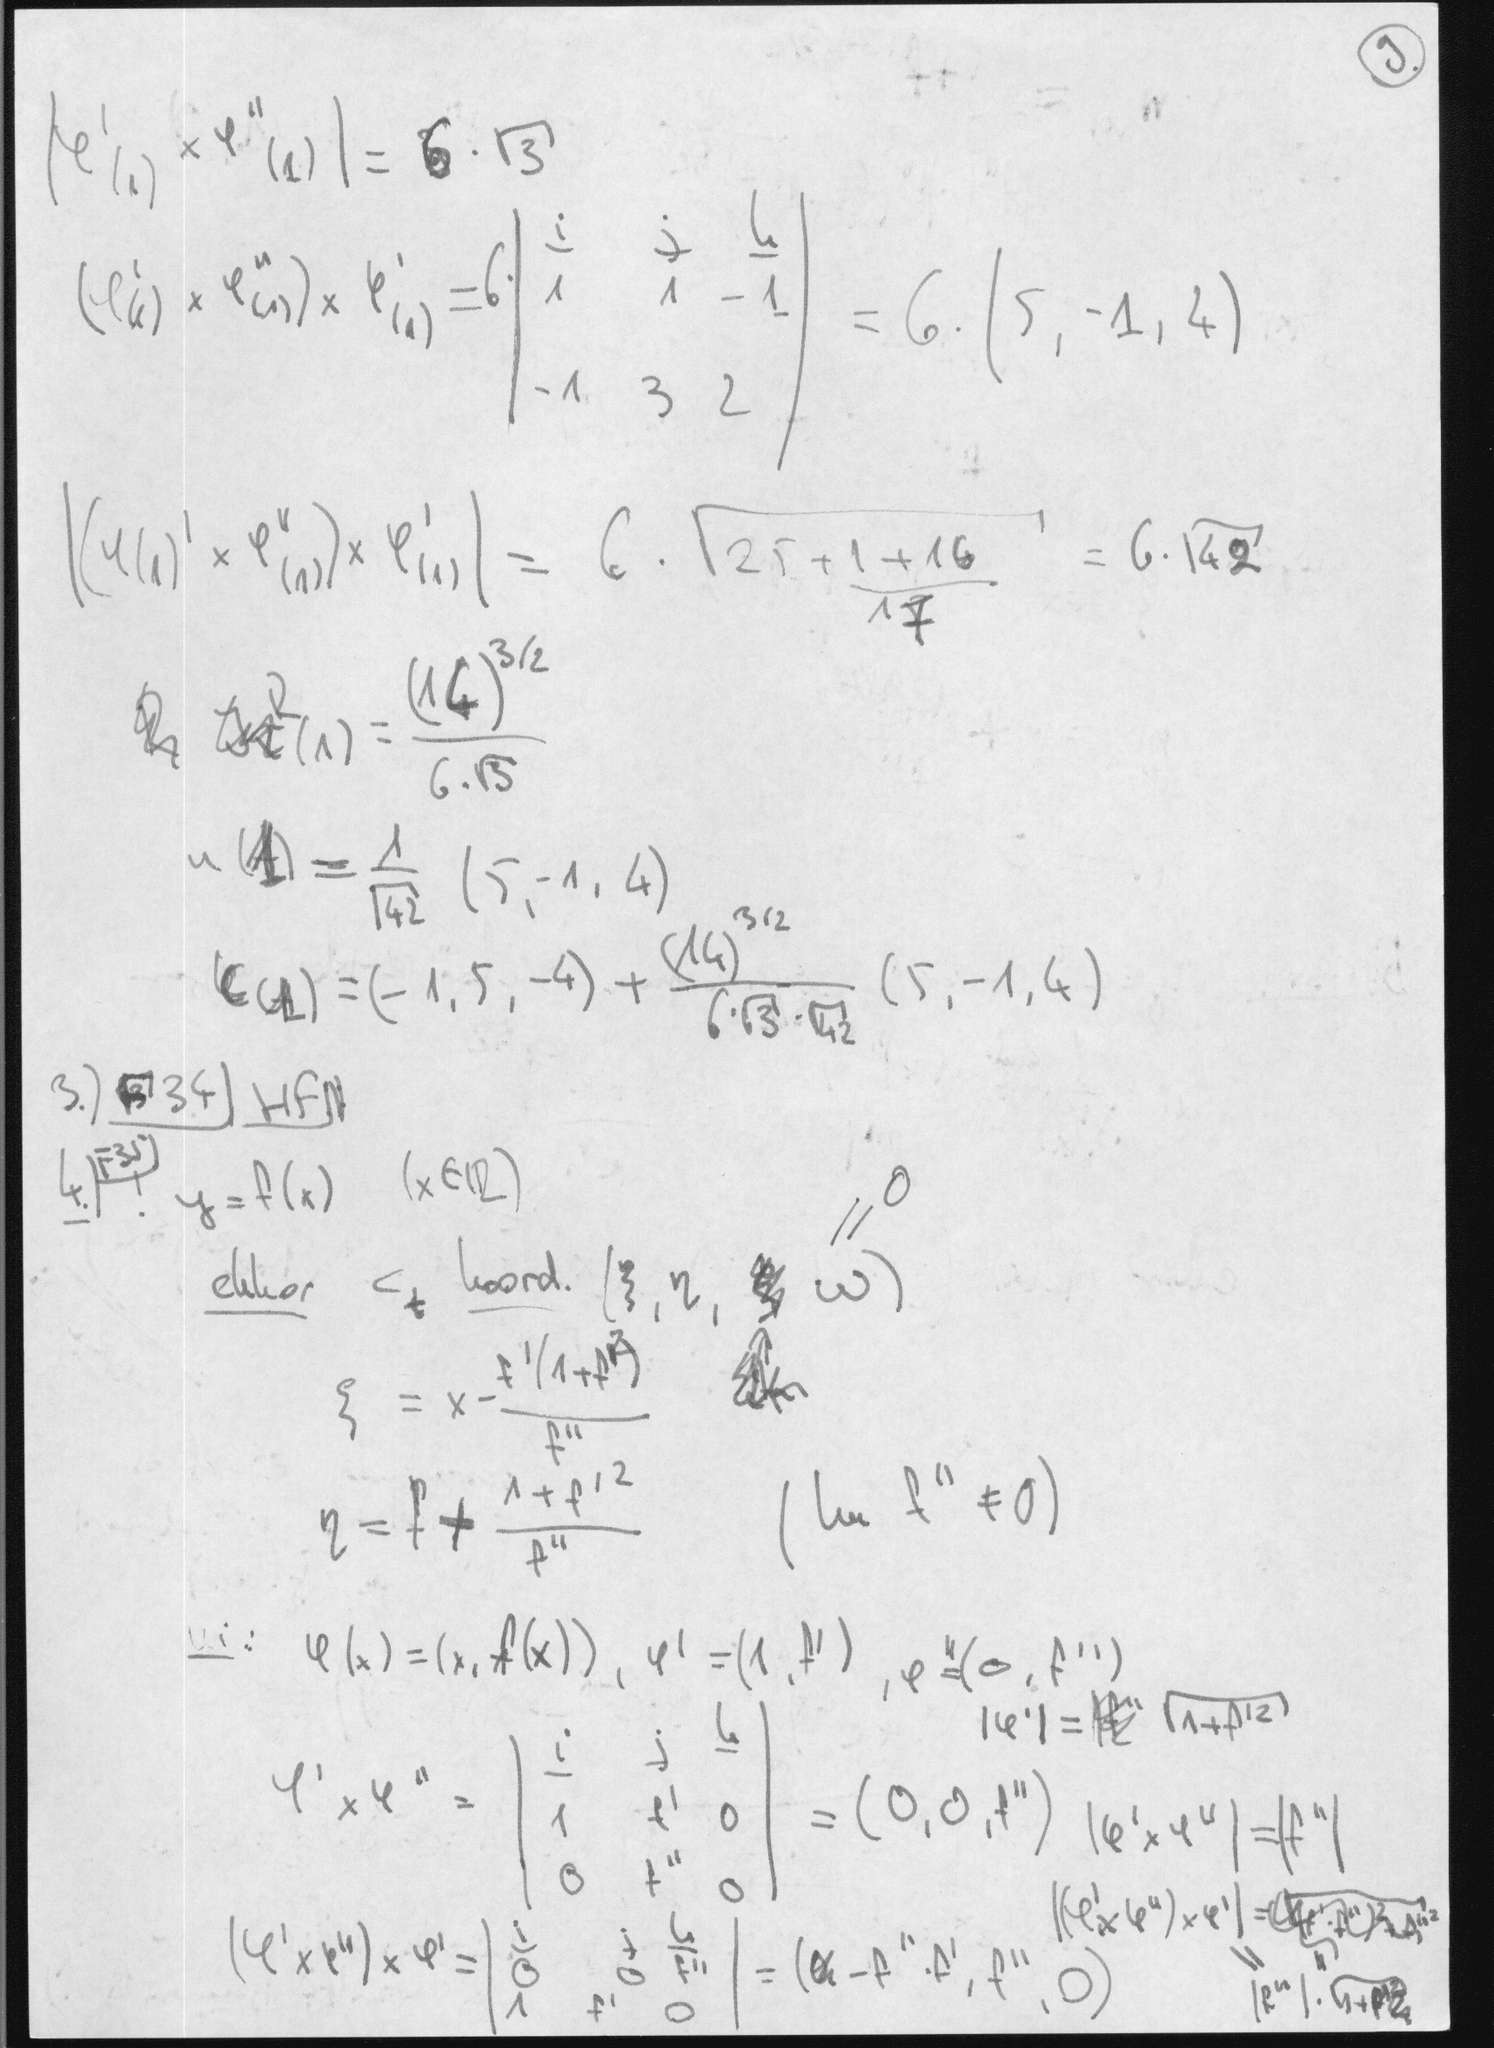 9.
|φ'(1) × φ''(1)| = 6·√3
(φ'(1) × φ''(1)) × φ'(1) = 6·| i j k ; 1 1 -1 ; -1 3 2 | = 6·(5, -1, 4)
|(φ(1)' × φ''(1)) × φ'(1)| = 6·√(25+1+16) = 6·√42
17
R(1) = (14)^3/2 / 6·√3
n(1) = 1/√42 (5, -1, 4)
c(1) = (-1, 5, -4) + (14)^3/2 / 6·√3·√42 (5, -1, 4)
3.) 34 HFN
4.) F35 y = f(x) (x∈ℝ)
ekkor c_t koord. (ξ, η, ω) = 0
ξ = x - f'(1+f'^2) / f''
η = f + 1+f'^2 / f'' (ha f'' ≠ 0)
Ui: φ(x) = (x, f(x)), φ' = (1, f'), φ'' = (0, f'')
|φ'| = √(1+f'^2)
φ' × φ'' = | i j k ; 1 f' 0 ; 0 f'' 0 | = (0, 0, f'') |φ' × φ''| = |f''|
(φ' × φ'') × φ' = | i j k ; 0 0 f'' ; 1 f' 0 | = (-f''·f', f'', 0)
|(φ' × φ'') × φ'| = |f''|·√(1+f'^2)